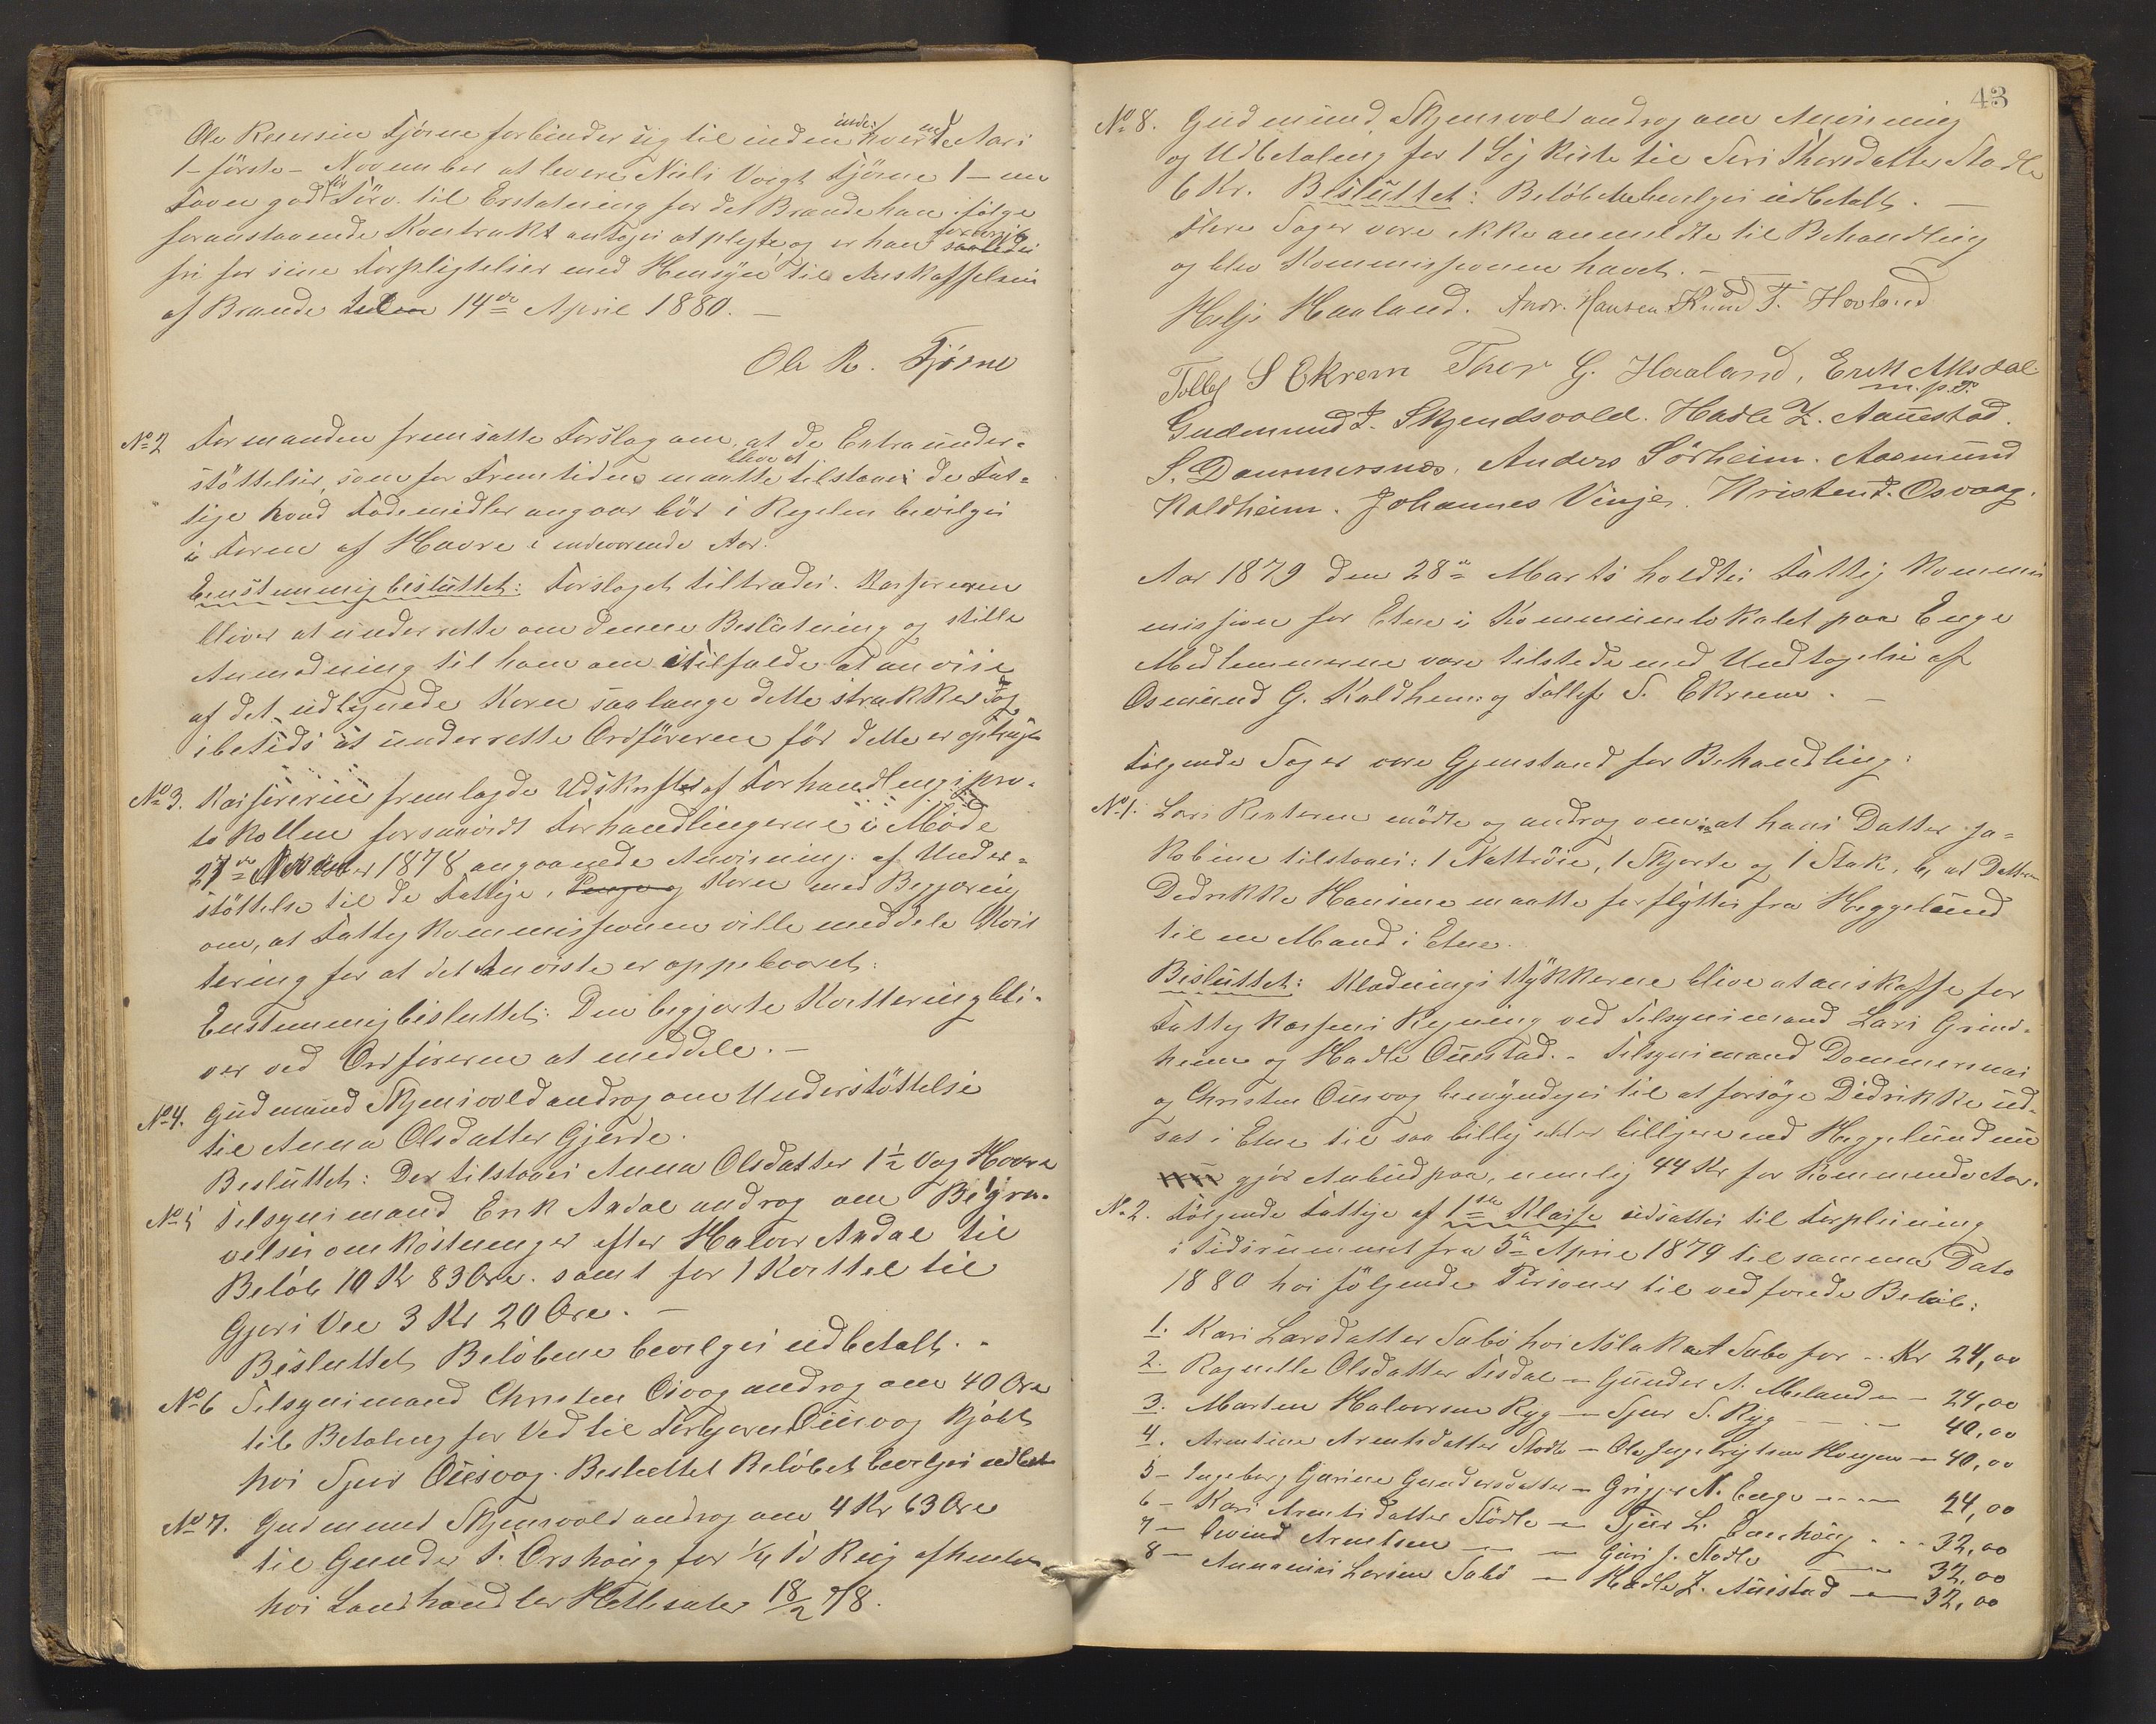 Ole Rasmussen Tjörne forbinder sig til inden hvert Aars
1 – förste – November at levere Niels Voigt Tjörne 1 – en
Favn god tör Törv til Erstatning for det Brænde han ifølge
foranstaaende Kontrakt antages at plegte, og er han forövrigt
fri for sine Forpligtelser med Hensyn til Anskaffelsen
af Brænde 14de April 1880. –
Ole R. Tjörne
No 2 Formanden fremsatte Forslag om, at de Extraunder-
støttelser, som for Fremtiden maatte blive at tilstaaes de Fat-
tige hvad Fødemidler angaar bör i Regelen bevilges
i Form af Havre i indeværende Aar.
Enstemmig besluttet: Forslaget tiltrædes. Kasserern
bliver at underrette om denne Beslutning og stille
Anmodning til ham om i Tilfælde at anvise
af det udlignede Korn saalænge dette strækker og
ibetids at underrette Ordföreren för dette er optinget
No 3. Kassereren fremlagde Udskrift af Forhandlingspro-
tokollen forsaavidt Forhandlingerne i Möde
27de 1878 angaaende Anvisning af Under-
støttelse til de Fattige, Korn med Begjæring
om, at Fattigkommissionen ville meddele Kvit
tering for at det Anviste er oppebaaret.
Enstemmig besluttet: Den begjærte Kvittering bli-
ver ved Ordföreren at meddele. –
No 4. Gudmund Skjensvold androg om Understöttelse
til Anna Olsdatter Gjerde.
Besluttet: Der tilstaaes Anna Olsdatter 1½ Vog Havre
No 5 Tilsynsmand Erik Axdal androg om Begra-
velsesomkostninger efter Halvor Axdal til
Belöb 10 Kr 83 Öre. samt for 1 Kvittel til
Gjøri Vee 3 Kr 20 Öre. –
Besluttet Belöbene bevilges udbetalt. –
No 6 Tilsynsmand Christen Osvog androg om 40 Öre
til Betaling for Ved til Torbjoren Ousvog kjöbt
hos Sjur Ousvog. Besluttet Belöbet bevilges udbet
No 7. Gudmund Skjensvold androg om 4 Kr 63 Öre
til Gunder T. Örshöug for ¼ Td Rug afhentet
hos Landhandler Hetlesæter 18/2 78.
43
No 8. Gudmund Skjensvold androg om Anvisning
og Udbetaling for 1 Lig Kiste til Siri Thorsdatter Stødle
6 Kr. Besluttet: Belöbet bevilges udbetalt. –
Flere Sager vare ikke anmeldte til Behandling
og blev Kommissionen hævet. –
Helje Haaland. Andr. Hansen. Knud T. Hovland
Tollef S Ekrem Thor G. Haaland, Erik Aksdal
m. p. P.
Gudmund T. Skjendsvold. Hadle Z. Aauestad.
S. Dommersnæs. Anders Sörheim. Aasmund
Kaldheim. Johannes Vinje. Kristen T. Osvaag.
Aar 1879 den 28de Marts holdtes Fattig Kommis
mission for Etne i Kommunelokalet paa Enge
Medlemmerne vare tilstede med Undtagelse af
Osmund G. Kaldheim og Tollef S. Ekrem. –
Følgende Sager vare Gjenstand for Behandling:
No 1. Lars Rexteren mødte og androg om, at hans Datter Ja-
kobine tilstaaes: 1 Nattröie, 1 Skjorte og 1 Stak, b, at Datteren
Dedrikke Hansine maatte forflyttes fra Heggelund
til en Mand i Etne.
Besluttet: Klædningsstykkerne blive at anskaffe for
Fattigkassens Regning ved Tilsynsmand Lars Grind-
heim og Hadle Ouestad. – Tilsynsmand Dommersnæs
og Christen Ousvog bemyndiges til at forsöge Didrikke ud-
sat i Etne til saa billig eller billigere end Heggelund nu
gjör Anbud paa, nemlig 44 Kr for kommende Aar.
No 2. Fölgende Fattige af 1ste Klasse udsættes til Forpleining
i Tidsrummet fra 5te April 1879 til samme Dato
1880 hos fölgende Personer til vedføiede Belöb:
1. Kari Larsdatter Sæbö hos Aslak A Sæbö for – Kr 24,00
2. Ragnilde Olsdatter Tesdal – Gunder A. Meland – – 24,00
3. Marten Halvorsen Ryg – Sjur S. Ryg – – – 40,00
4. Arentine Arentsdatter Stødle – Ole Ingebrigtsen Haugen – 40,00
5 – Ingeborg Gurine Gundersdatter – Grigjer N. Enge – – – 24,00
6 – Kari Arentsdatter Stödle – Sjur L. – – – 32,00
7 – Eivind Arentsen – – Guri J. Stødle – – 32,00
8 – Larsen Sæbö – Hadle Z. Auestad – – 32,00